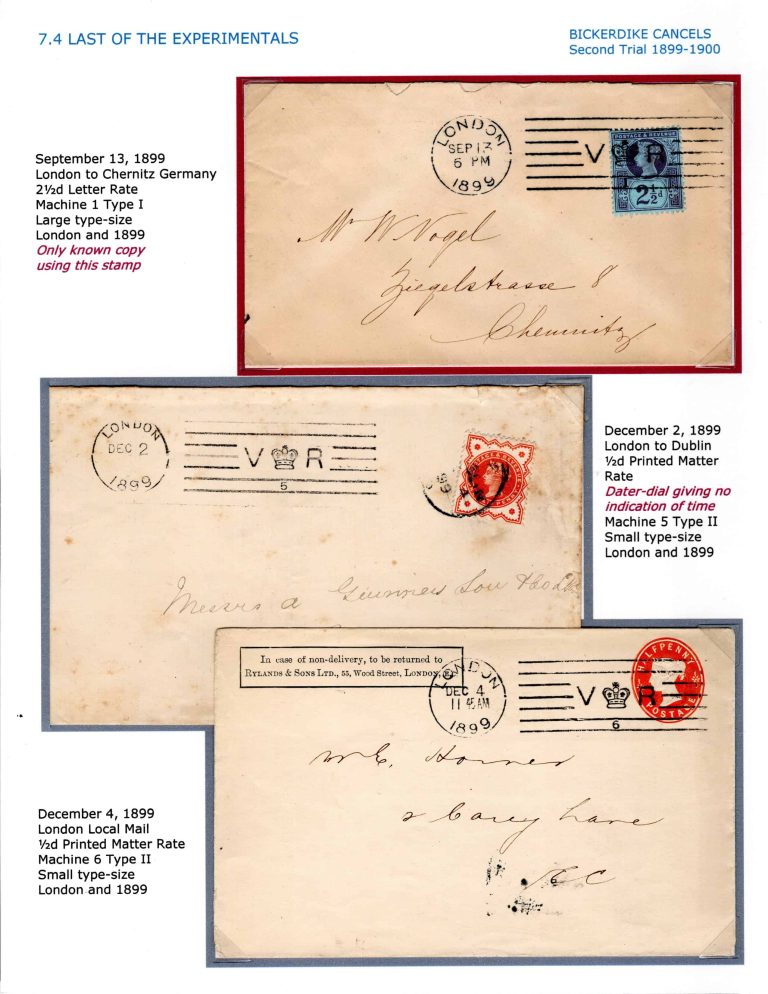 7.4 LAST OF THE EXPERIMENTALS
BICKERDIKE CANCELS
Second Trial 1899-1900
September 13, 1899
London to Chernitz Germany
2½d Letter Rate
Machine 1 Type I
Large type-size
London and 1899
Only known copy
using this stamp
LONDON
SEP 13
6 PM
1899
V R
POSTAGE & REVENUE
2½d
Mr W Vogel
Ziegelstrasse 8
Chemnitz
LONDON
DEC 2
1899
V R
5
Messrs A Guinness Son & Co Ltd
December 2, 1899
London to Dublin
½d Printed Matter
Rate
Dater-dial giving no
indication of time
Machine 5 Type II
Small type-size
London and 1899
In case of non-delivery, to be returned to
RYLANDS & SONS LTD., 55, Wood Street, LONDON, E.C.
LONDON
DEC 4
11 45 AM
1899
V R
6
HALFPENNY
POSTAGE
Horner
2 Carey Lane
E C
December 4, 1899
London Local Mail
½d Printed Matter Rate
Machine 6 Type II
Small type-size
London and 1899